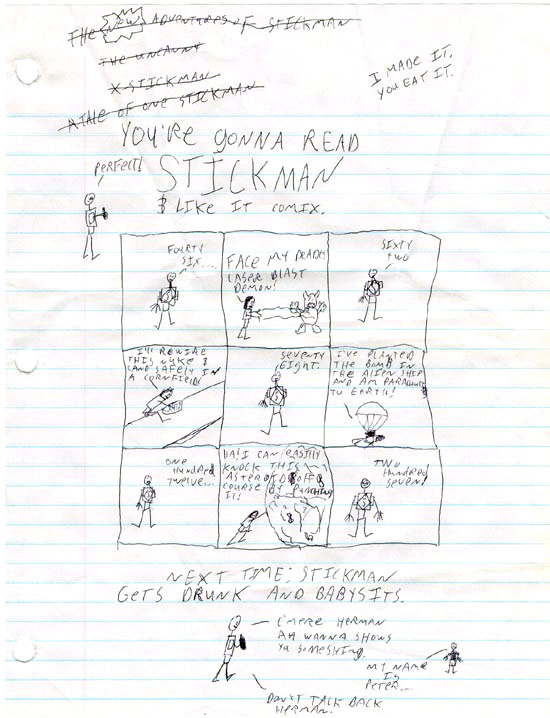 THE NEW ADVENTURES OF STICKMAN
THE UNCANNY
X-STICKMAN
A TALE OF ONE STICKMAN
I MADE IT.
YOU EAT IT.
YOU'RE GONNA READ
STICKMAN
& LIKE IT COMIX.
PERFECT!
FOURTY
SIX...
FACE MY DEADLY
LASER BLAST
DEMON!
SIXTY
TWO
I'LL REWIRE
THIS NUKE &
LAND SAFELY IN
A CORNFIELD!
SEVENTY
EIGHT.
I'VE PLANTED
THE BOMB IN
THE ALIEN SHIP
AND AM PARACHUTE
TO EARTH!
ONE
HUNDRED
TWELVE...
HA! I CAN EASILY
KNOCK THIS
ASTEROID OFF
COURSE BY PUNCHING
IT!
TWO
HUNDRED
SEVEN!
NEXT TIME: STICKMAN
GETS DRUNK AND BABYSITS.
C'MERE HERMAN
AH WANNA SHOWS
YU SOMESHING.
MY NAME
IS
PETER...
DON'T TALK BACK
HERMAN.